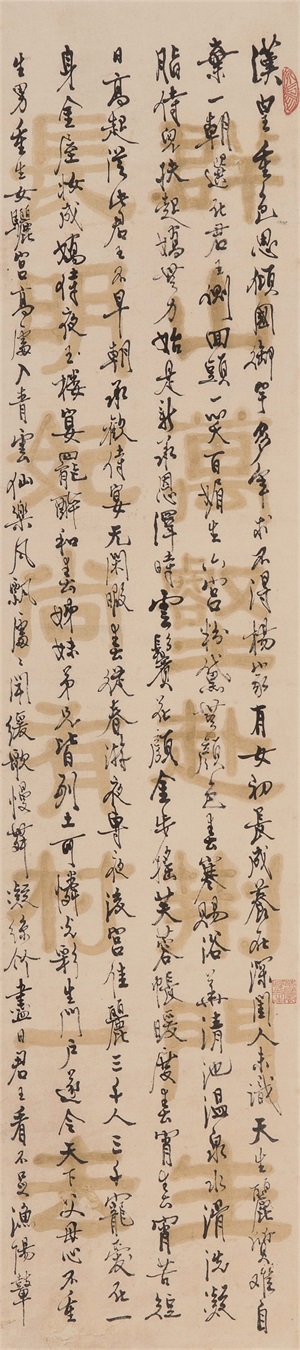 漢皇重色思傾國御宇多年求不得楊家有女初長成養在深閨人未識天生麗質難自
棄一朝選在君王側回頭一笑百媚生六宮粉黛無顏色春寒賜浴華清池溫泉水滑洗凝
脂侍兒扶起嬌無力始是新承恩澤時雲鬢花顏金步搖芙蓉帳暖度春宵春宵苦短
日高起從此君王不早朝承歡侍宴无閑暇春從春游夜專夜後宮佳麗三千人三千寵愛在一
身金屋妝成嬌侍夜玉樓宴罷醉和春姊妹弟兄皆列土可憐光彩生門戶遂令天下父母心不重
生男重生女驪宮高處入青雲仙樂風飄處〻聞緩歌慢舞凝絲竹盡日君王看不足漁陽鼙